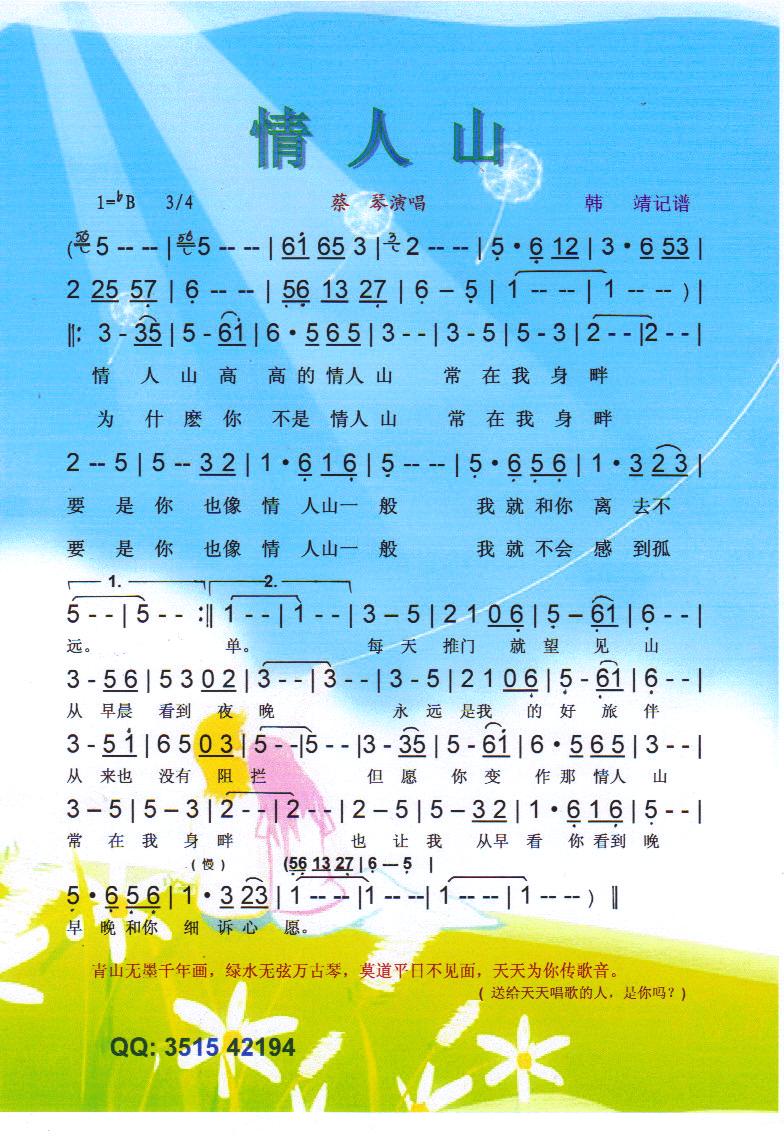 情人山
1=♭B 3/4 蔡 琴演唱 韩 靖记谱
(5 -- -- | 5 -- -- | 61 65 3 | 2 -- -- | 5 · 6 12 | 3 · 6 53 |
2 25 57 | 6 -- -- | 56 13 27 | 6 – 5 | 1 -- -- | 1 -- -- ) |
‖: 3 - 35 | 5 - 61 | 6 · 5 6 5 | 3 - - | 3 - 5 | 5 - 3 | 2 - - | 2 - - |
情 人 山 高 高 的 情人 山 常 在 我 身 畔
为 什 麽 你 不是 情人 山 常 在 我 身 畔
2 -- 5 | 5 -- 3 2 | 1 · 6 1 6 | 5 -- -- | 5 · 6 5 6 | 1 · 3 2 3 |
要 是 你 也像 情 人山一 般 我 就 和你 离 去不
要 是 你 也像 情 人山一 般 我 就 不会 感 到孤
1. 2.
5 - - | 5 - - :‖ 1 - - | 1 - - | 3 – 5 | 2 1 0 6 | 5 – 61 | 6 - - |
远。 单。 每 天 推门 就 望 见 山
3 - 5 6 | 5 3 0 2 | 3 - - | 3 - - | 3 - 5 | 2 1 0 6 | 5 - 61 | 6 - - |
从 早晨 看到 夜 晚 永 远 是我 的 好 旅 伴
3 - 5 1 | 6 5 0 3 | 5 - - | 5 - - | 3 - 35 | 5 - 61 | 6 · 5 6 5 | 3 - - |
从 来也 没有 阻 拦 但 愿 你 变 作 那 情人 山
3 – 5 | 5 – 3 | 2 - - | 2 - - | 2 – 5 | 5 – 32 | 1 · 6 1 6 | 5 - - |
常 在 我 身 畔 也 让 我 从早 看 你 看到 晚
(慢) (56 13 27 | 6 — 5 |
5 · 6 5 6 | 1 · 3 23 | 1 -- -- | 1 -- -- | 1 -- -- | 1 -- -- ) ‖
早 晚 和你 细 诉 心 愿。
青山无墨千年画，绿水无弦万古琴，莫道平日不见面，天天为你传歌音。
( 送给天天唱歌的人，是你吗？)
QQ: 3515 42194